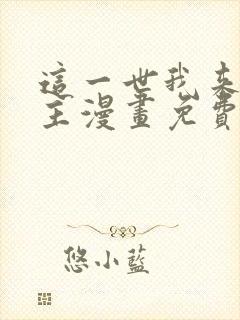 這一世我來
主漫畫免費
悠小藍